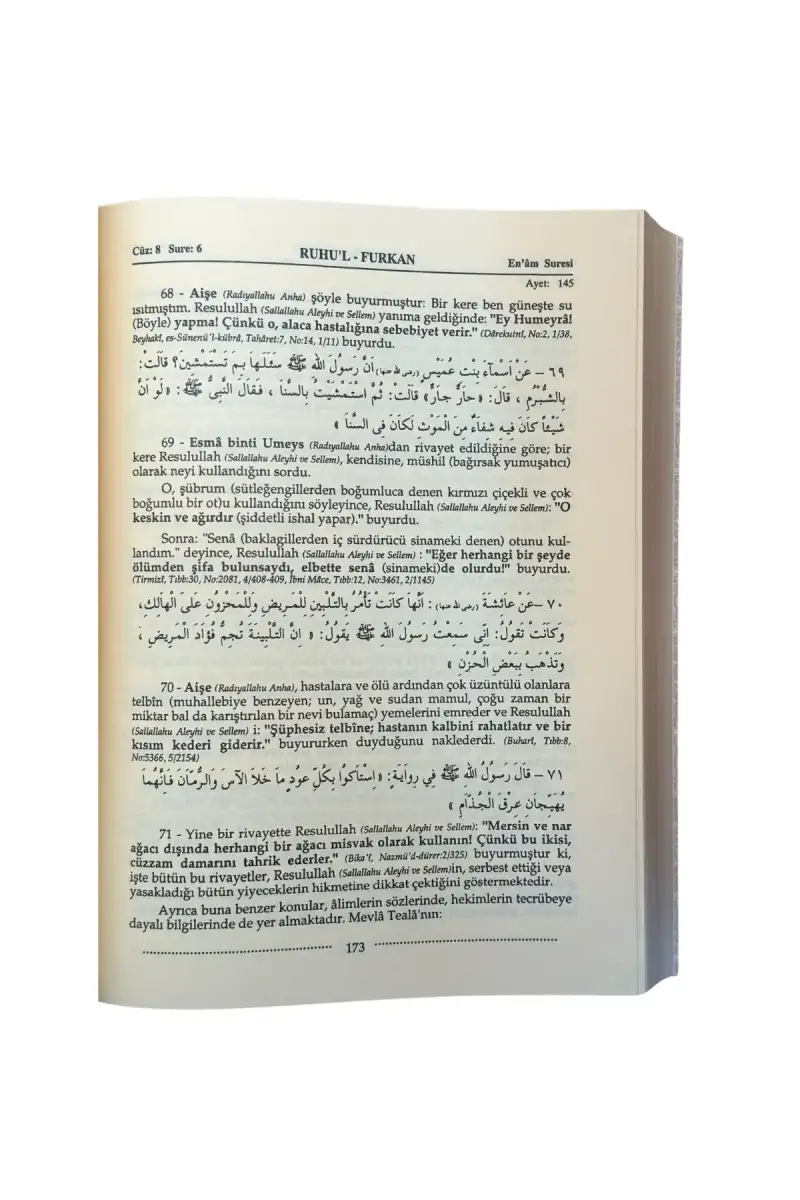 Cüz: 8 Sure: 6
RUHU'L - FURKAN
En'âm Suresi
Ayet: 145
68 - Aişe (Radıyallahu Anha) şöyle buyurmuştur: Bir kere ben güneşte su
ısıtmıştım. Resulullah (Sallallahu Aleyhi ve Sellem) yanıma geldiğinde: "Ey Humeyrâ!
(Böyle) yapma! Çünkü o, alaca hastalığına sebebiyet verir." (Dârekutnî, No:2, 1/38,
Beyhakî, es-Sünenü'l-kübrâ, Tahâret:7, No:14, 1/11) buyurdu.
٦٩ – عَنْ اَسْمَآءَ بِنْتِ عُمَيْسٍ (رضى الله عنها) اَنَّ رَسُولَ اللهِ ﷺ سَئَلَهَا بِمَ تَسْتَمْشِينَ؟ قَالَتْ:
بِالشُّبْرُمِ ، قَالَ: « حَارٌّ جَارٌّ » قَالَتْ: ثُمَّ اسْتَمْشَيْتُ بِالسَّنَا ، فَقَالَ النَّبِىُّ ﷺ: « لَوْ اَنَّ
شَيْئًا كَانَ فِيهِ شِفَاءٌ مِنَ الْمَوْتِ لَكَانَ فِى السَّنَا »
69 - Esmâ binti Umeys (Radıyallahu Anha)dan rivayet edildiğine göre; bir
kere Resulullah (Sallallahu Aleyhi ve Sellem), kendisine, müshil (bağırsak yumuşatıcı)
olarak neyi kullandığını sordu.
O, şübrum (sütleğengillerden boğumluca denen kırmızı çiçekli ve çok
boğumlu bir ot)u kullandığını söyleyince, Resulullah (Sallallahu Aleyhi ve Sellem): "O
keskin ve ağırdır (şiddetli ishal yapar)." buyurdu.
Sonra: "Senâ (baklagillerden iç sürdürücü sinameki denen) otunu kul-
landım." deyince, Resulullah (Sallallahu Aleyhi ve Sellem) : "Eğer herhangi bir şeyde
ölümden şifa bulunsaydı, elbette senâ (sinameki)de olurdu!" buyurdu.
(Tirmizî, Tıbb:30, No:2081, 4/408-409, İbni Mâce, Tıbb:12, No:3461, 2/1145)
٧٠ – عَنْ عَائِشَةَ (رضى الله عنها) : اَنَّهَا كَانَتْ تَأْمُرُ بِالتَّلْبِينِ لِلْمَرِيضِ وَلِلْمَحْزُونِ عَلَى الْهَالِكِ،
وَكَانَتْ تَقُولُ: اِنِّى سَمِعْتُ رَسُولَ اللهِ ﷺ يَقُولُ: « اِنَّ التَّلْبِينَةَ تُجِمُّ فُؤَادَ الْمَرِيضِ ،
وَتَذْهَبُ بِبَعْضِ الْحُزْنِ »
70 - Aişe (Radıyallahu Anha), hastalara ve ölü ardından çok üzüntülü olanlara
telbîn (muhallebiye benzeyen; un, yağ ve sudan mamul, çoğu zaman bir
miktar bal da karıştırılan bir nevi bulamaç) yemelerini emreder ve Resulullah
(Sallallahu Aleyhi ve Sellem) i: "Şüphesiz telbîne; hastanın kalbini rahatlatır ve bir
kısım kederi giderir." buyururken duyduğunu naklederdi. (Buharî, Tıbb:8,
No:5366, 5/2154)
٧١ – قَالَ رَسُولُ اللهِ ﷺ فِي رِوَايَةٍ: « اِسْتَاكُوا بِكُلِّ عُودٍ مَا خَلاَ الآسَ وَالرُّمَّانَ فَاِنَّهُمَا
يُهَيِّجَانِ عِرْقَ الْجُذَامِ »
71 - Yine bir rivayette Resulullah (Sallallahu Aleyhi ve Sellem): "Mersin ve nar
ağacı dışında herhangi bir ağacı misvak olarak kullanın! Çünkü bu ikisi,
cüzzam damarını tahrik ederler." (Bika'î, Nazmü'd-dürer:2/325) buyurmuştur ki,
işte bütün bu rivayetler, Resulullah (Sallallahu Aleyhi ve Sellem)in, serbest ettiği veya
yasakladığı bütün yiyeceklerin hikmetine dikkat çektiğini göstermektedir.
Ayrıca buna benzer konular, âlimlerin sözlerinde, hekimlerin tecrübeye
dayalı bilgilerinde de yer almaktadır. Mevlâ Teala'nın:
173